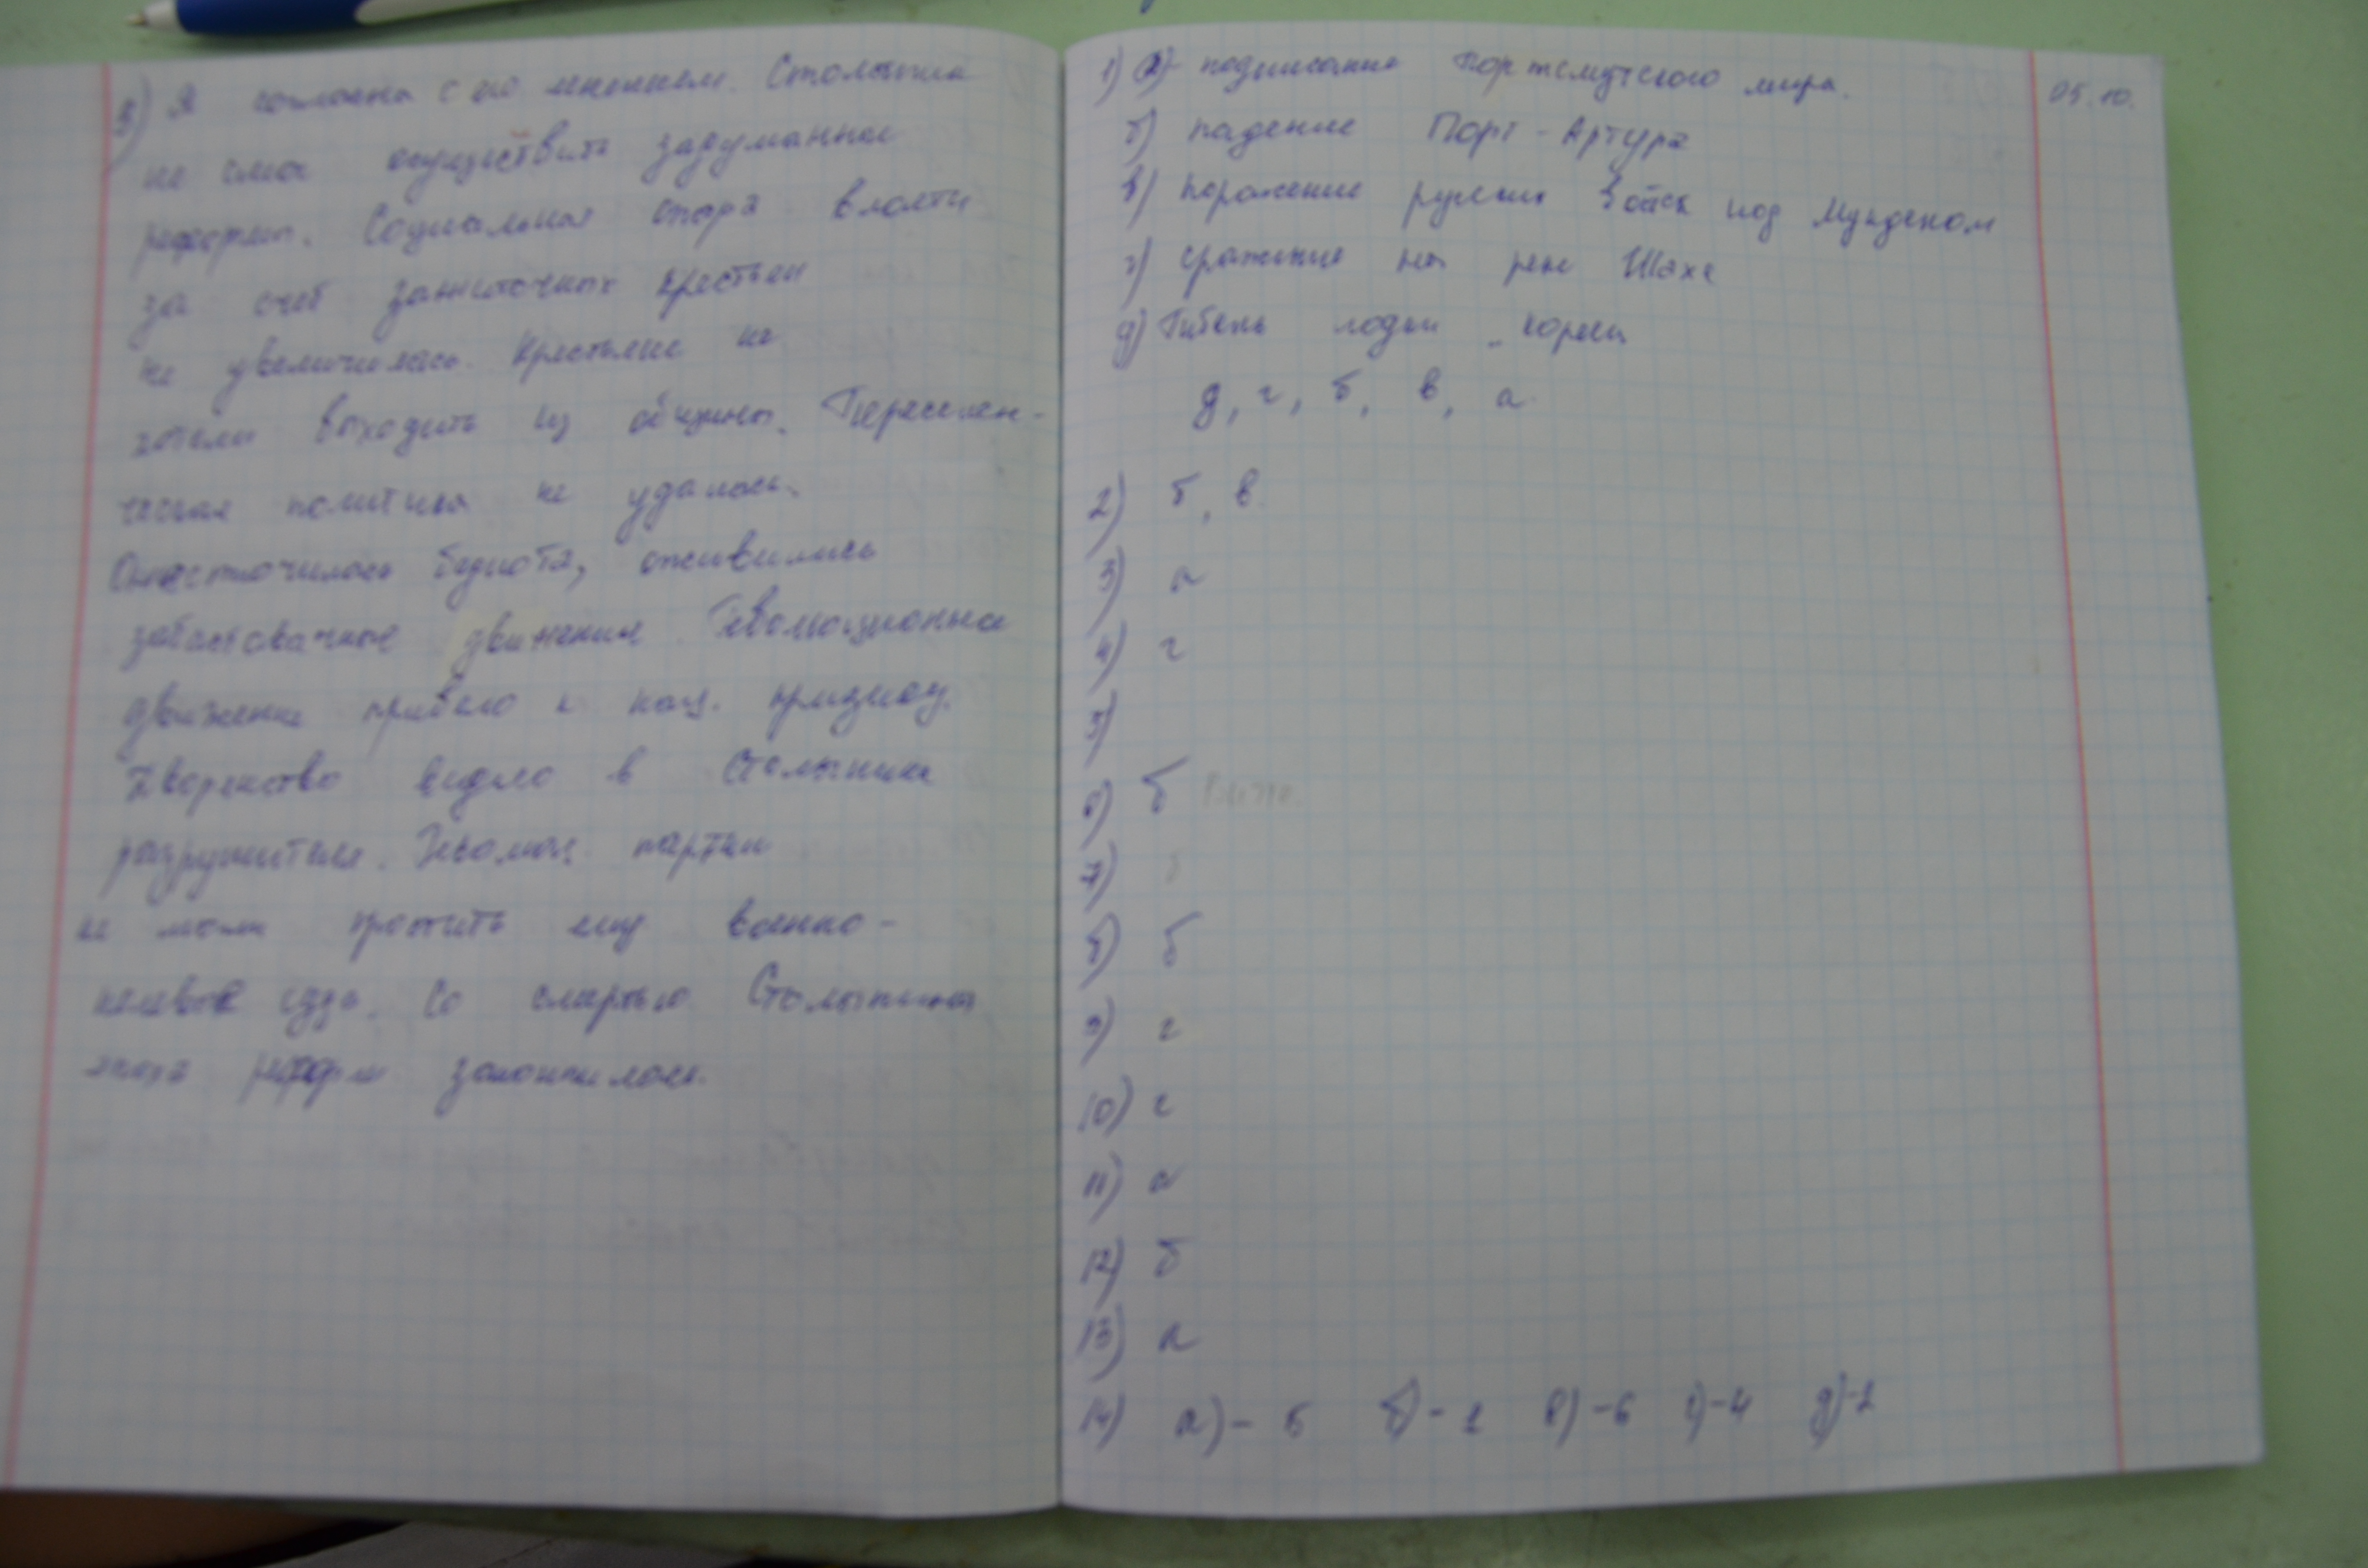 3) Я согласна с его мнением. Столыпин
не смог осуществить задуманные
реформы. Социальная опора власти
за счёт зажиточных крестьян
не увеличилась. Крестьяне не
хотели выходить из общины. Переселен-
ческая политика не удалась.
Ожесточилась беднота, оживились
забастовочные движения. Революционное
движение привело к нац. кризису.
Дворянство видело в Столыпине
разрушителя. партии
не могли простить ему военно-
полевые суды. Со смертью Столыпина
эпоха реформ закончилась.
25.10.
1) а) подписание Портсмутского мира.
б) падение Порт-Артура
в) поражение русских войск под Мукденом
г) сражение на реке Шахе
д) Гибель лодки "Кореец
д, г, б, в, а
2) б, в
3) а
4) г
5)
6) б Витте
7)
8) б
9) г
10) г
11) а
12) б
13) а
14) а) - 5 б) - 1 в) - 6 г) - 4 д) - 2